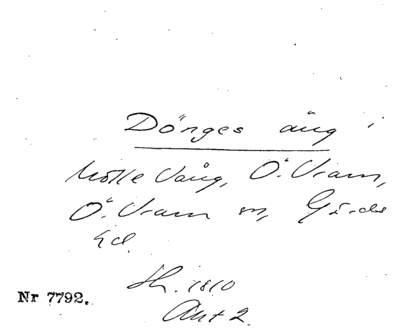 Dönges äng i
Mölle Vång, Ö. Vram,
Ö. Vram sn, Gärds
hd.
Sk. 1810
Akt 2.
Nr 7792.